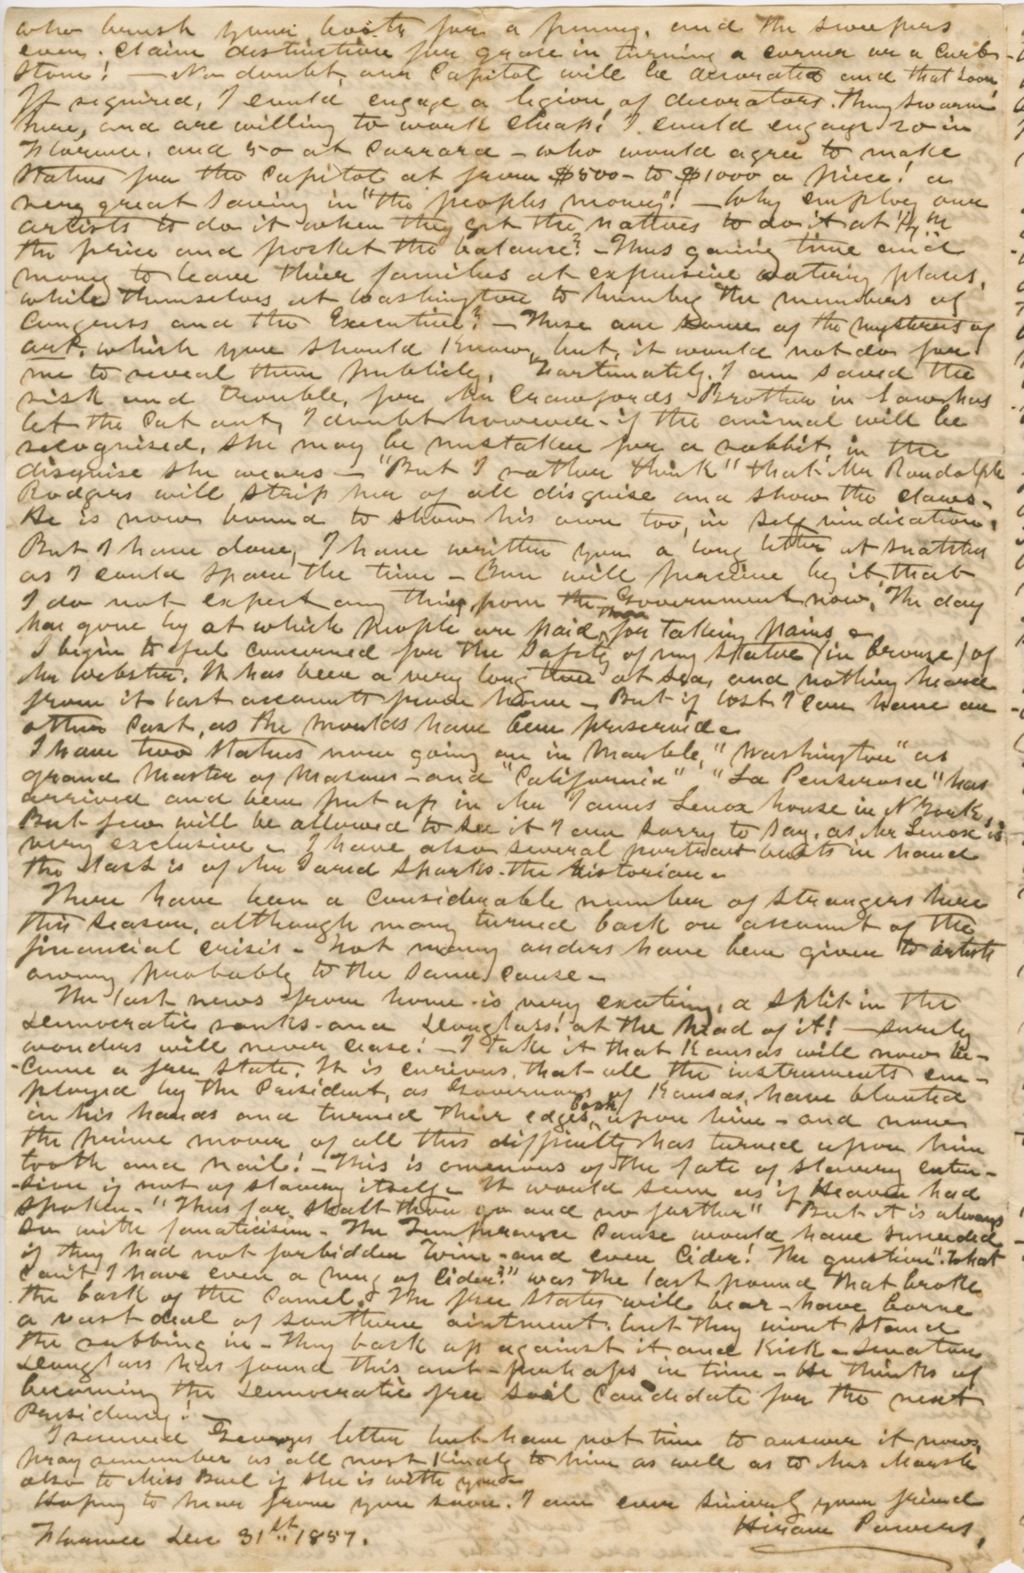 who brush your boots for a penny, and the sweepers
even. claim distinction for grace in turning a corner or a curb-
stone! — No doubt, our Capitol will be decorated and that soon
If required, I could engage a legion of decorators. They swarm
here, and are willing to work cheap! I could engage 20 in
Florence. and 50 at Carrara - who would agree to make
Statues for the Capitol at from $500- to $1000 a piece! a
very great saving in "the peoples money"! — Why employ our
artists to do it when they get the natives to do it at
the price and pocket the balance? - Thus gaining time and
money to leave their families at expensive watering places,
while themselves at Washington to humbug the members of
Congress and the Executive? — These are some of the mysteries of
art, which you should know, but, it would not do for
me to reveal them publicly. Fortunately. I am saved the
risk and trouble, for Mr Crawfords Brother in Law has
let the cat out, I doubt however - if the animal will be
recognised. She may be mistaken for a rabbit, in the
disguise she wears — "But I rather think" that Mr Randolph
Rodgers will strip her of all disguise and show the claws -
He is now bound to show his own too, in self vindication.
But I have done, I have written you a long letter at snatches
as I could spare the time - You will perceive by it, that
I do not expect any thing from the Government now, The day
has gone by at which People are paid for taking pains -
I begin to feel concerned for the safety of my statue (in bronze) of
Mr Webster. It has been a very long time at sea, and nothing heard
from it last accounts from home - But if lost I can have an-
other cast, as the moulds have been preserved -
I have two statues now going on in marble, "Washington" as
grand Master of Masons - and "California" "La Penserosa" has
arrived and been put up in Mr James Lenox house in N York,
But few will be allowed to see it I am sorry to say, as Mr Lenox is
very exclusive - I have also several portrait busts in hand
the last is of Mr Jared Sparks - the historian -
There have been a considerable number of strangers here
this season, although many turned back on account of the
financial crisis - Not many orders have been given to artists
owing probably to the same cause -
The last news from home - is very exciting, a split in the
Democratic ranks - and Douglass! at the head of it! — surely
wonders will never cease! - I take it that Kansas will now be-
-come a free State. It is curious, that all the instruments em-
ployed by the President, as Governors of Kansas, have blunted
in his hands and turned their edges back upon him - and now
the prime mover of all this difficulty has turned upon him
tooth and nail! - This is ominous of the fate of slavery exten-
-sion if not of slavery itself - It would seem as if Heaven had
spoken - "Thus far shalt thou go and no farther" But it is always
so with fanaticism - The Temperance cause would have succeeded
if they had not forbidden wine - and even Cider! The question "What
can't I have even a mug of Cider?" was the last pound that broke
the back of the Camel. The free States will bear - have borne
a vast deal of southern ointment. but they wont stand
the rubbing in - They back up against it and kick - Senator
Douglass has found this out - perhaps in time - He thinks of
becoming the Democratic free soil candidate for the next
Presidency! -
I received Georges letter but have not time to answer it now,
Pray remember us all most kindly to him as well as to Mrs Marsh
also to Miss Buel if she is with you -
Hoping to hear from you soon. I am ever sincerely your friend
Hiram Powers,
Florence Dec 31st 1857.